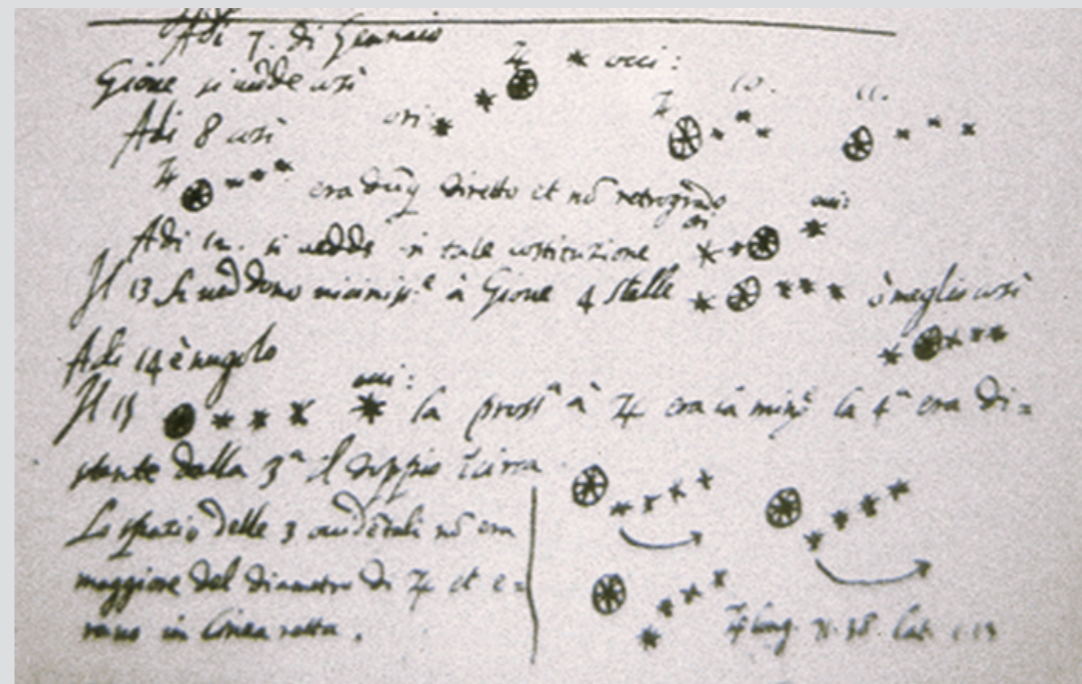 Adi 7. di Gennaio
Gioue si uedde così ♃ * occi:
Adi 8 così ori * ♃ 10. 11.
♃ era dūq diretto et nō retrogrado
Adi 12. si uedde in tale costituzione ori occi:
Il 13 si ueddono à Gioue 4 stelle ò meglio così
Adi 14 è nugolo
Il 15 occi: la pross.ª à ♃ era la min.ª la 4ª era di=
stante dalla 3ª il doppio circa
Lo spazio delle 3 occidētali nō era
maggiore del diametro di ♃ et e=
rano in linea retta.
♃ long. 71.38. lat. 1.13